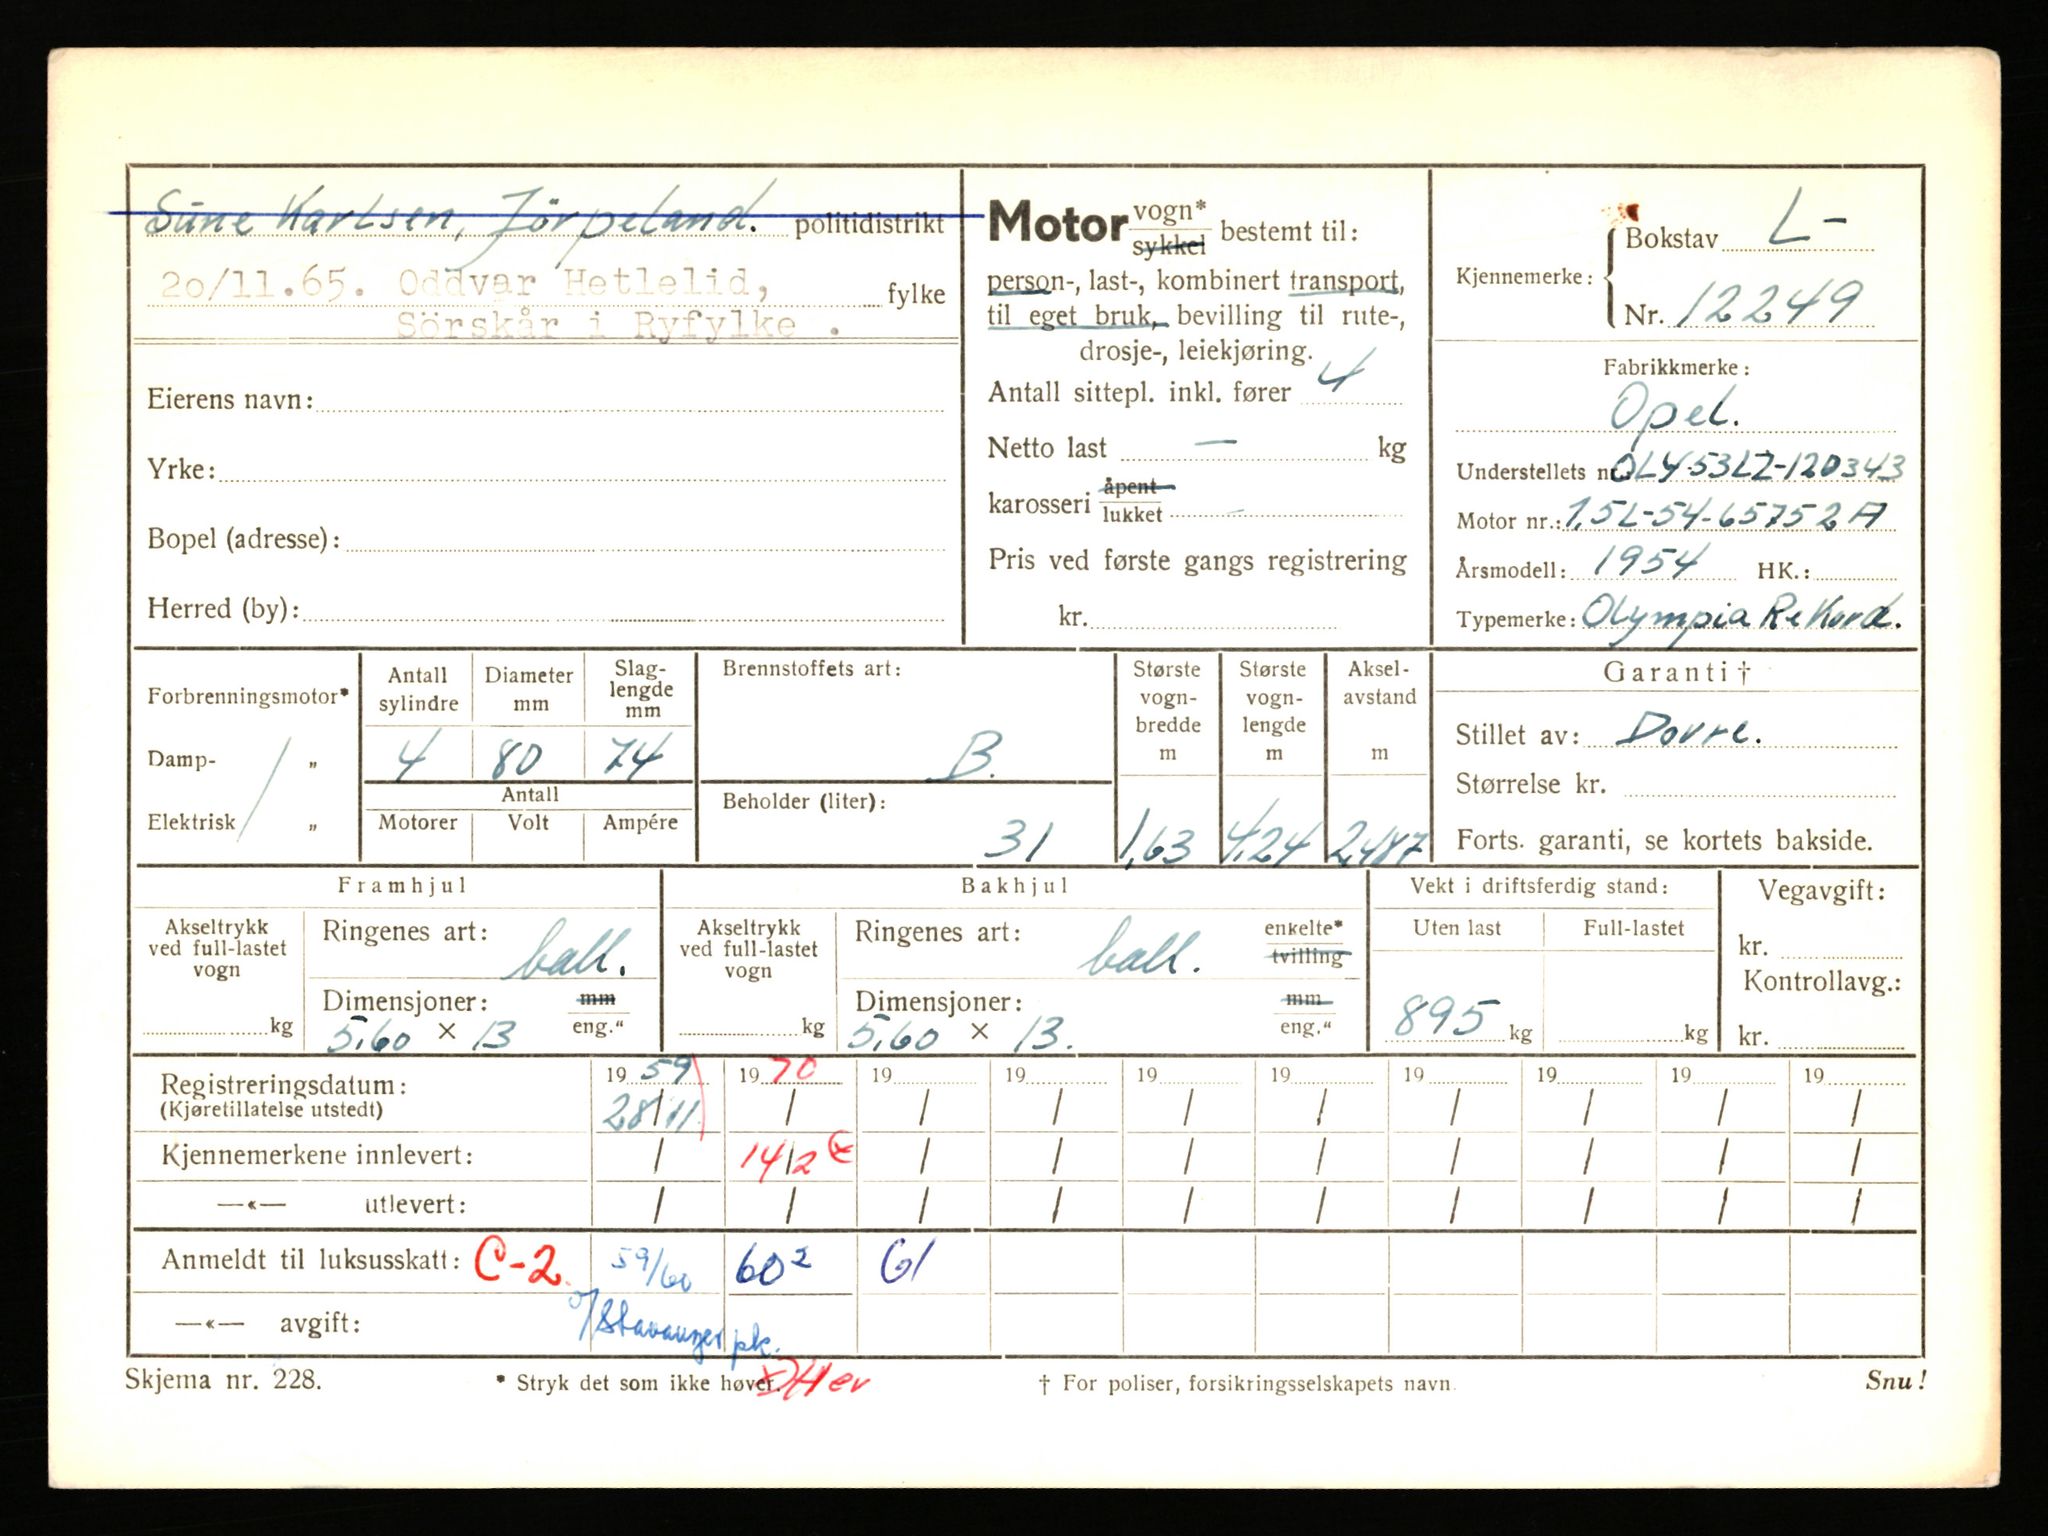 Sune Karlsen, Jörpeland. politidistrikt
20/11.65. Oddvar Hetlelid, fylke
Sörskår i Ryfylke .
Eierens navn:
Yrke:
Bopel (adresse):
Herred (by):
Motor vogn* sykkel bestemt til:
person-, last-, kombinert transport,
til eget bruk, bevilling til rute-,
drosje-, leiekjøring.
Antall sittepl. inkl. fører 4
Netto last — kg
karosseri åpent lukket –
Pris ved første gangs registrering
kr.
Kjennemerke: Bokstav L-
Nr. 12249
Fabrikkmerke:
Opel.
Understellets nr. OLY-53LZ-120343
Motor nr.: 1,5L-54-65752A
Årsmodell: 1954 HK.:
Typemerke: Olympia Rekord.
Forbrenningsmotor*
Damp- „
Elektrisk „
Antall sylindre
4
Diameter mm
80
Slag-lengde mm
74
Antall
Motorer Volt Ampére
Brennstoffets art:
B.
Beholder (liter):
31
Største vogn-bredde m
1,63
Største vogn-lengde m
4,24
Aksel-avstand m
2,487
Garanti †
Stillet av: Dovre.
Størrelse kr.
Forts. garanti, se kortets bakside.
Framhjul
Akseltrykk ved full-lastet vogn
kg
Ringenes art: ball.
Dimensjoner: mm eng."
5,60 × 13
Bakhjul
Akseltrykk ved full-lastet vogn
kg
Ringenes art: ball. enkelte* tvilling
Dimensjoner: mm eng."
5,60 × 13.
Vekt i driftsferdig stand:
Uten last Full-lastet
895 kg kg
Vegavgift:
kr.
Kontrollavg.:
kr.
Registreringsdatum: 19 59 19 70 19 19 19 19 19 19 19 19
(Kjøretillatelse utstedt) 28/11 / / / / / / / / /
Kjennemerkene innlevert: / 14/2 x / / / / / / / /
—«— utlevert: / / / / / / / / / /
Anmeldt til luksusskatt: C-2. 59/60 60² 61
—«— avgift: o/Stavanger pk.
Skjema nr. 228. * Stryk det som ikke høver. † For poliser, forsikringsselskapets navn. Snu!